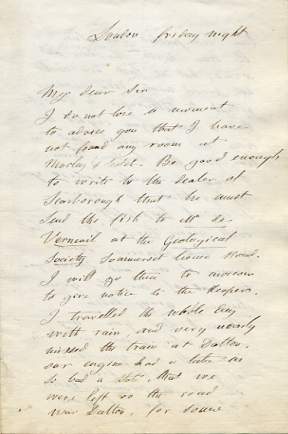 London friday night
My dear Sir
I do not lose a moment
to advise you that I have
not found any room at
Morley's Hotel. Be good enough
to write to the dealer at
Scarborough that he must
send the fish to Mr de
Verneuil at the Geological
Society Somerset house Strand.
I will go there to morrow
to give notice to the keepers.
I travelled the whole way
with rain, and very nearly
missed the train at
our engine had a tube in
so bad a state, that we
were left on the road
near for some